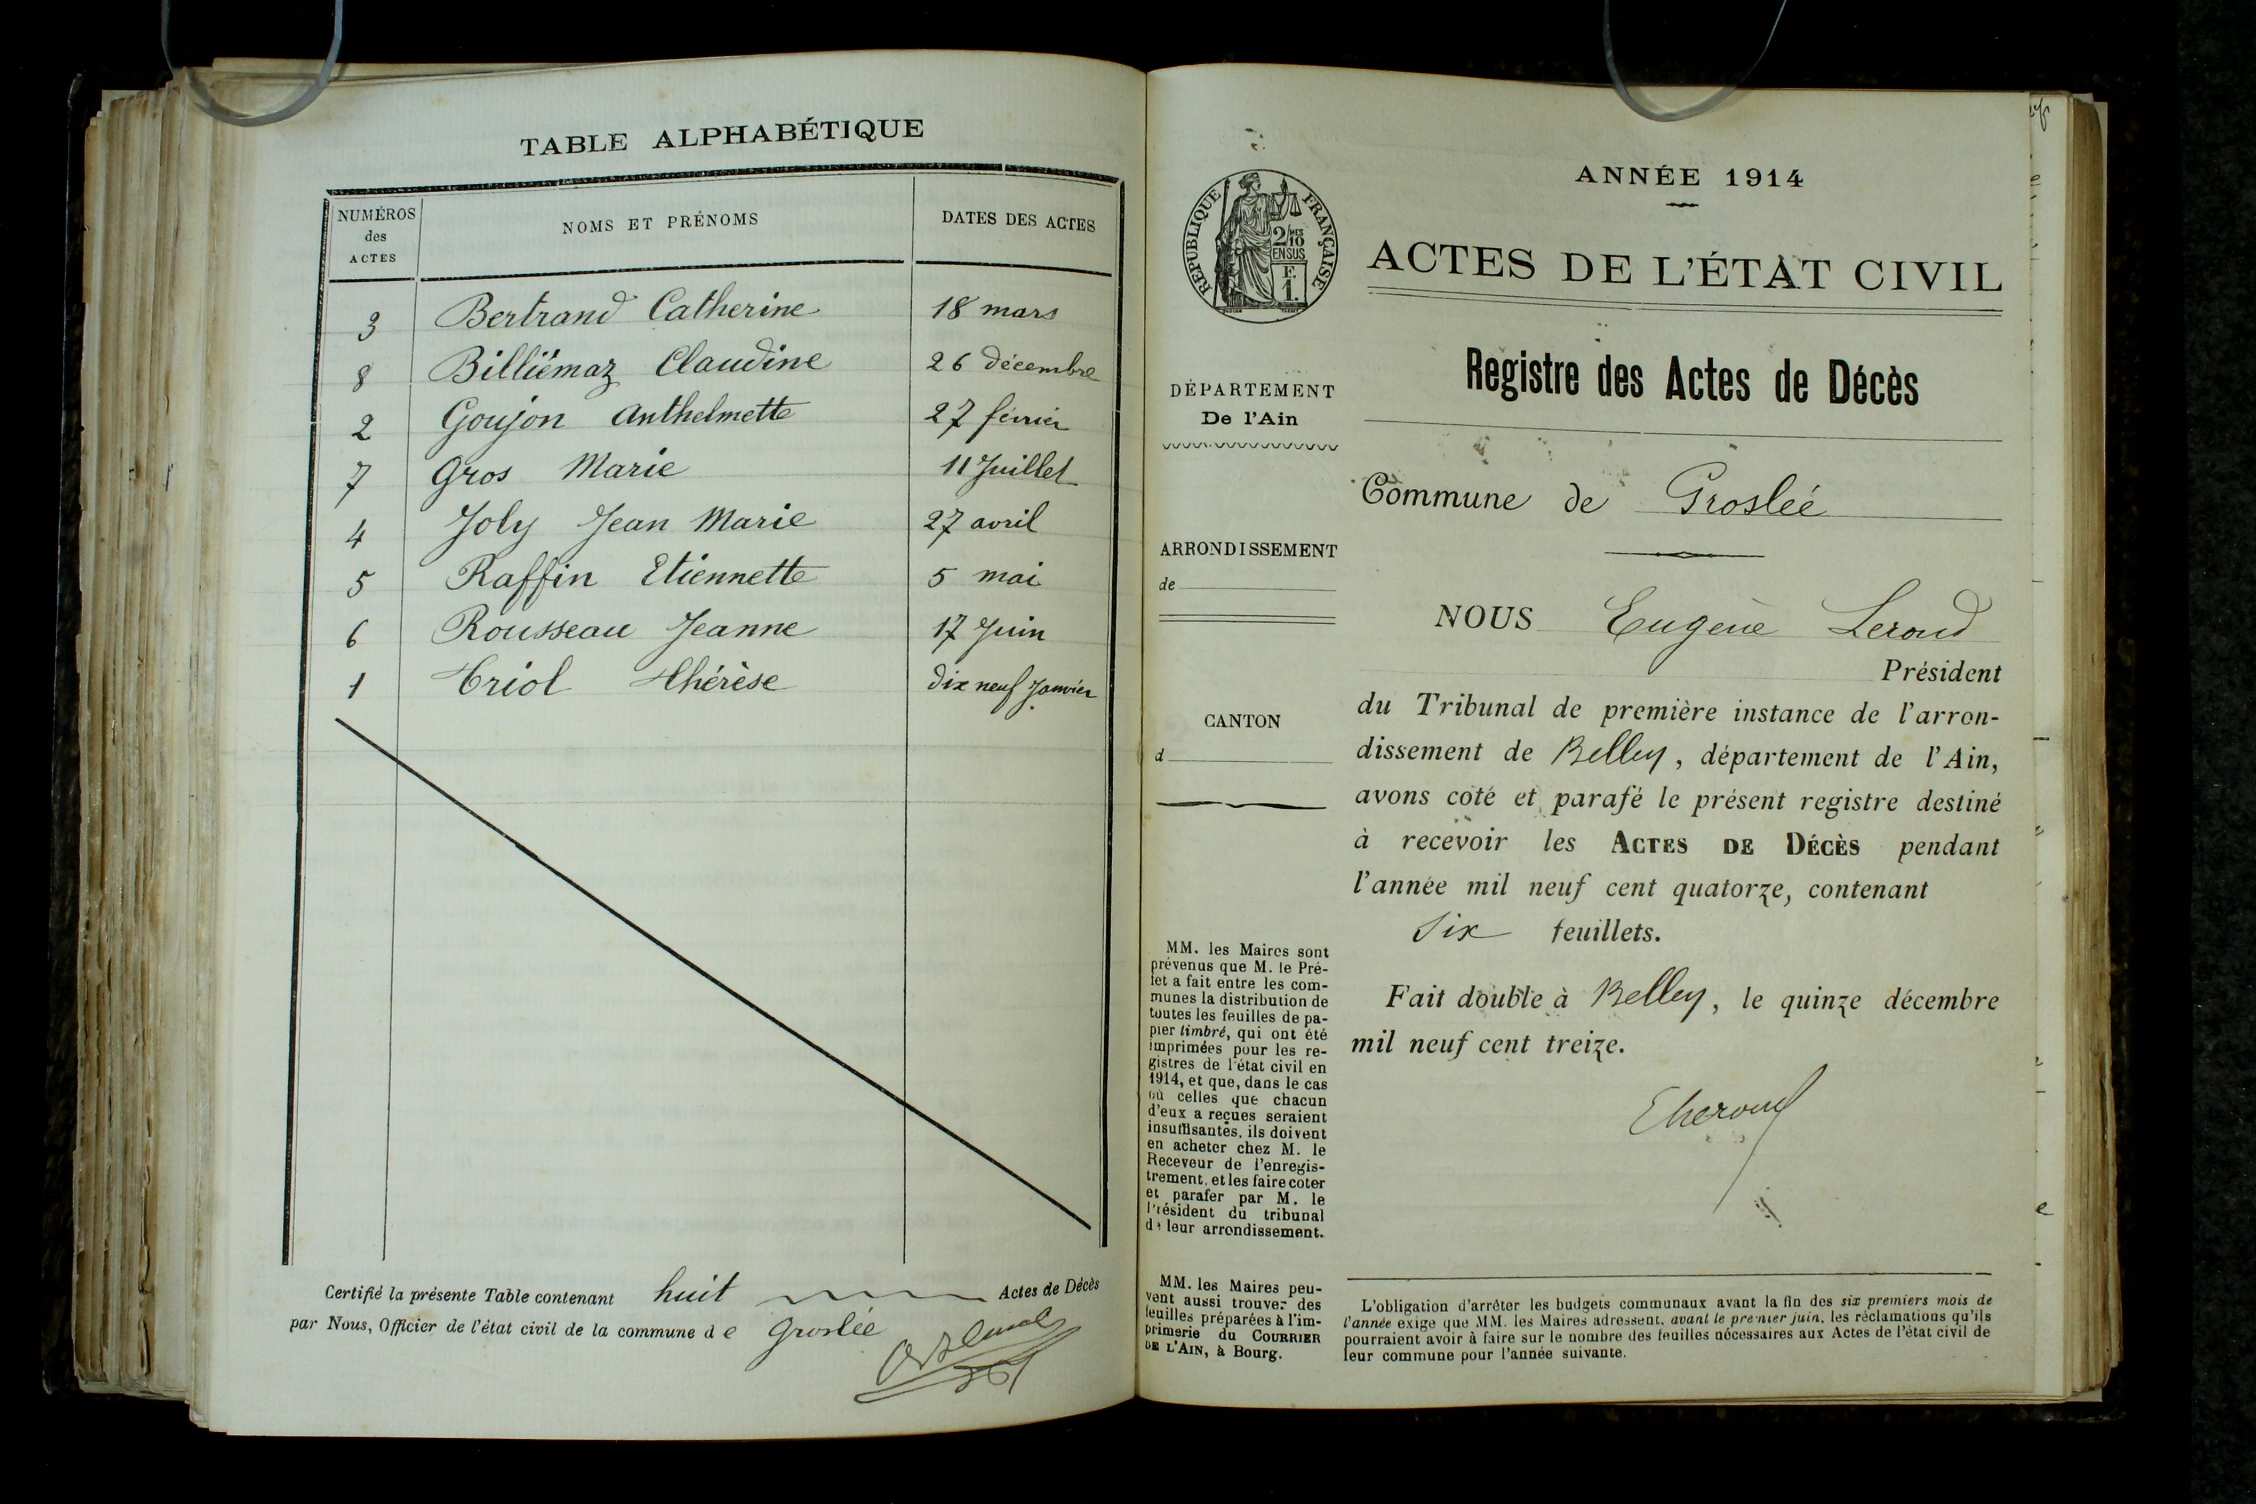 TABLE ALPHABÉTIQUE
NUMÉROS des ACTES
NOMS ET PRÉNOMS
DATES DES ACTES
3 Bertrand Catherine 18 mars
8 Billiémaz Claudine 26 décembre
2 Goujon Anthelmette 27 février
7 Gros Marie 11 Juillet
4 Joly Jean Marie 27 avril
5 Raffin Etiennette 5 mai
6 Rousseau Jeanne 17 Juin
1 Triol Thérèse dix neuf Janvier
Certifié la présente Table contenant huit Actes de Décès
par Nous, Officier de l'état civil de la commune de Groslée
RÉPUBLIQUE FRANÇAISE
2/10 MES
EN SUS
F.
1.
DÉPARTEMENT
De l'Ain
ARRONDISSEMENT
de
CANTON
d
MM. les Maires sont
prévenus que M. le Pré-
fet a fait entre les com-
munes la distribution de
toutes les feuilles de pa-
pier timbré, qui ont été
imprimées pour les re-
gistres de l'état civil en
1914, et que, dans le cas
où celles que chacun
d'eux a reçues seraient
insuffisantes, ils doivent
en acheter chez M. le
Receveur de l'enregis-
trement, et les faire coter
et parafer par M. le
Président du tribunal
de leur arrondissement.
MM. les Maires peu-
vent aussi trouver des
feuilles préparées à l'im-
primerie du COURRIER
DE L'AIN, à Bourg.
ANNÉE 1914
ACTES DE L'ÉTAT CIVIL
Registre des Actes de Décès
Commune de Groslée
NOUS Eugène Leroud
Président
du Tribunal de première instance de l'arron-
dissement de Belley, département de l'Ain,
avons coté et parafé le présent registre destiné
à recevoir les ACTES DE DÉCÈS pendant
l'année mil neuf cent quatorze, contenant
Six feuillets.
Fait double à Belley, le quinze décembre
mil neuf cent treize.
L'obligation d'arrêter les budgets communaux avant la fin des six premiers mois de
l'année exige que MM. les Maires adressent, avant le premier juin, les réclamations qu'ils
pourraient avoir à faire sur le nombre des feuilles nécessaires aux Actes de l'état civil de
leur commune pour l'année suivante.